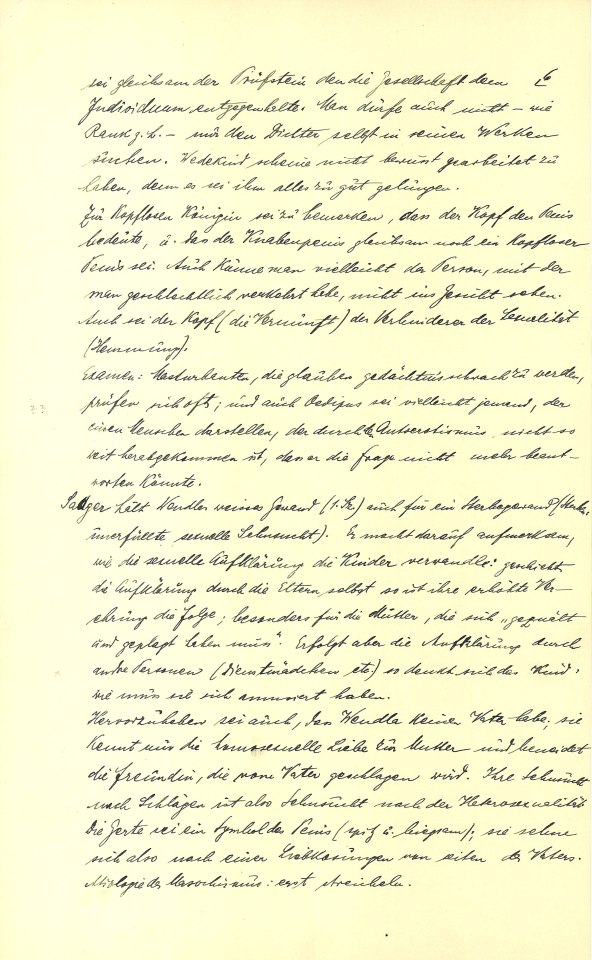 sei gleichsam der Prüfstein den die Gesellschaft dem 6
Individuum entgegenhelte. Man dürfe auch nicht – wie
Rank z. B. – nur den Dichter selbst in seinen Werken
suchen. Wedekind scheine nicht bewusst gearbeitet zu
haben, denn es sei ihm alles zu gut gelungen.
Zur Kopflosen Königin sei zu bemerken, dass der Kopf den Penis
bedeute, u. dass der Knabenpenis gleichsam noch ein Kopfloser
Penis sei. Auch Könne man vielleicht der Person, mit der
man geschlechtlich verkehrt habe, nicht ins Gesicht sehen.
Auch sei der Kopf (die Vernunft) der Verhinderer der Sexualität
(Hemmung).
Examen: Masturbanten, die glauben gedächtnisschwach zu werden,
prüfen sich oft; und auch Oedipus sei vielleicht jemand, der
einen Menschen darstellen, der durch den Autoerotismus nicht so
weit herabgekommen ist, dass er die Frage nicht mehr beant-
worten Könnte.
Sadger hält Wendlas weisses Gewand (1. Sz.) auch für ein Sterbegewand (
unerfüllte sexuelle Sehnsucht). Er macht darauf aufmerksam,
wie die sexuelle Aufklärung die Kinder verwandle: geschieht
die Aufklärung durch die Eltern selbst so ist ihre erhöhte Ver-
ehrung die Folge; besonders für die Mutter, die sich „gequält
und geplagt haben muss". Erfolgt aber die Aufklärung durch
andre Personen (Dienstmädchen etc.) so denkt sich das Kind:
wie muss sie sich amusiert haben.
Hervorzuheben sei auch, dass Wendla Keinen Vater habe; sie
Kennt nur die homosexuelle Liebe zur Mutter und beneidet
die Freundin, die vom Vater geschlagen wird. Ihre Sehnsucht
nach Schlägen ist also Sehnsucht nach der Heterosexualität
Die Gerte sei ein Symbol des Penis (spitz u. biegsam); sie sehne
sich also nach einer Liebkosungen von seiten des Vaters.
Ätiologie des Masochismus: erst streicheln.